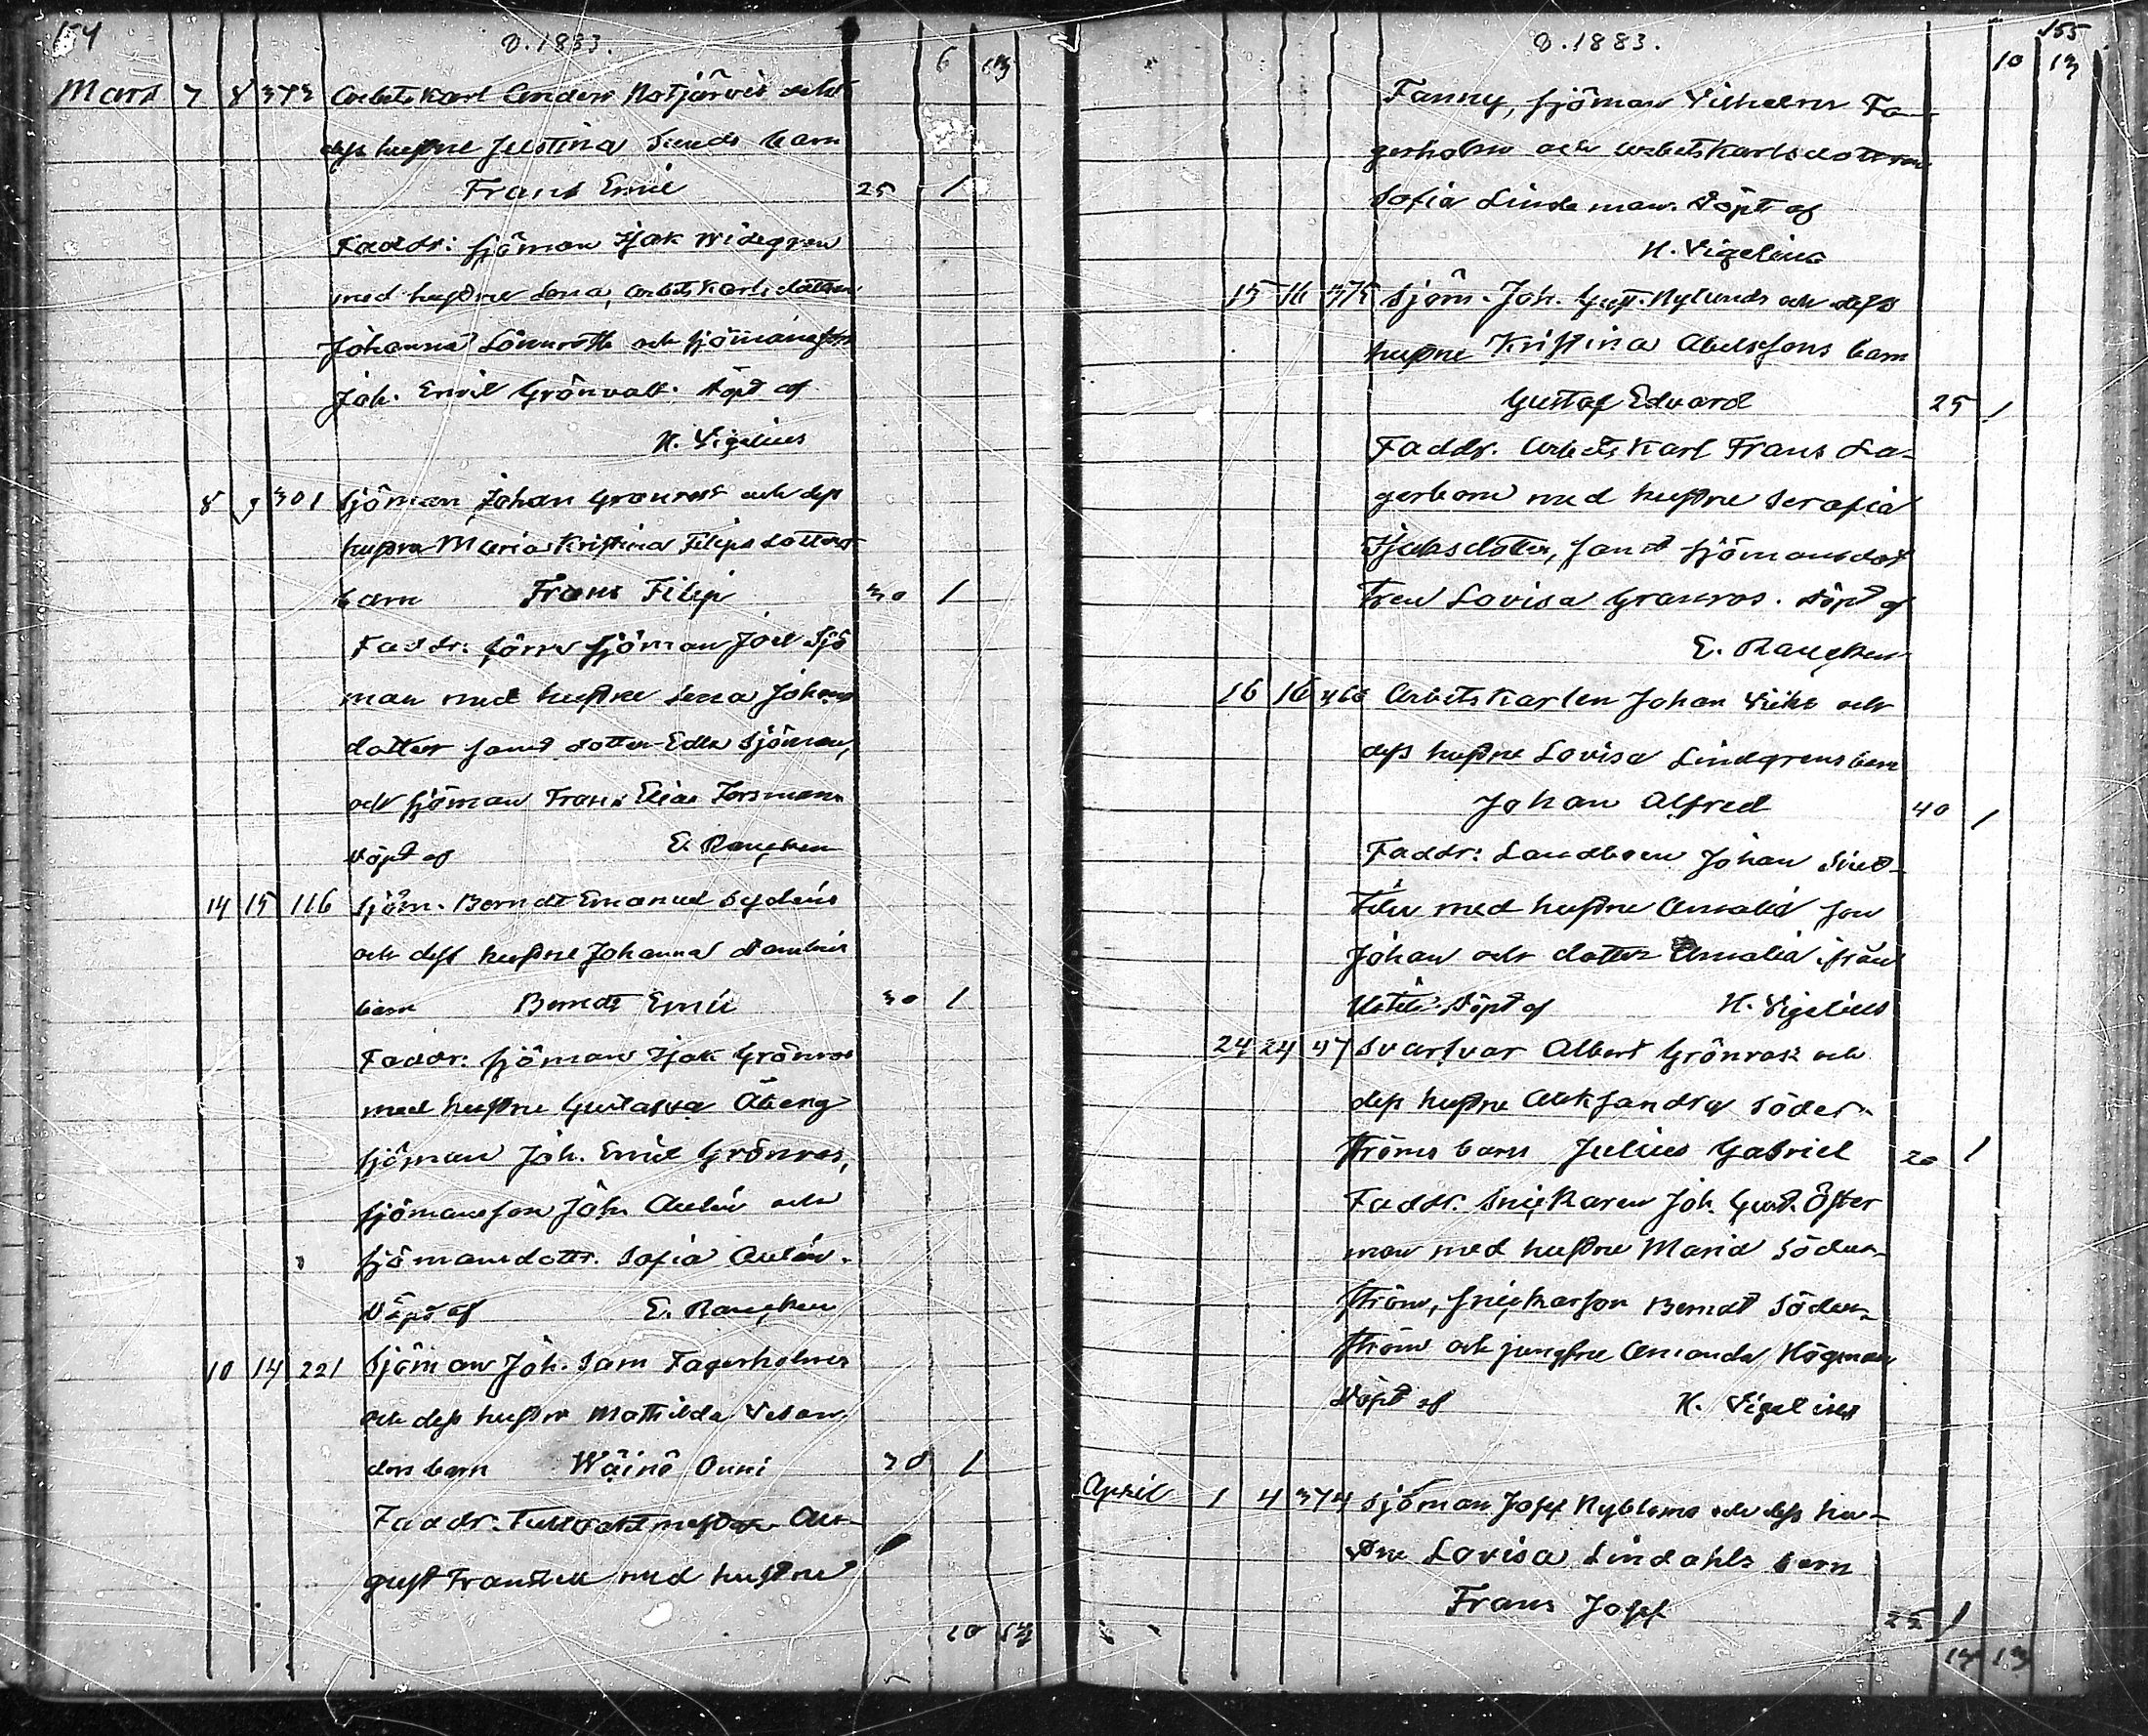 154
D. 1883.
6 13
Mars 7 8 373 Arbetskarl Anders Kotjärvis och
dess hustru Justina Sunds barn
Frans Emil 25 1
Faddr: sjöman Isak Widegren
med hustru Lena, arbetskarlsdottern
Johanna Lönnroth och sjömansson
Joh. Emil Grönvall. Döpt af
H. Vigelius
8 9 301 Sjöman Johan Granros och dess
hustru Maria Kristina Filipsdotters
barn Frans Filip 30 1
Faddr: förre sjöman Joel Sjö
man med hustru Lena Johans
dotter samt dotter Edla Sjöman,
och sjöman Frans Elias Forsman
Döpt af E. Rancken
14 15 116 Sjöm. Berndt Emanuel
och dess hustru Johanna
barn Berndt Emil 30 1
Faddr: sjöman Isak Grönros
med hustru Gustafva Åberg
sjöman Joh. Emil Grönros,
sjömansson Joh. Aulin och
sjömansdottr. Sofia Aulin.
Döpt af E. Rancken
10 14 221 Sjöman Joh. Sam Fagerholms
och dess hustru Mathilda
ders barn Wäinö Onni 28 1
Faddr. Tullvaktmästar Au-
gust med hustru
10 13
155
D. 1883.
10 13
Fanny, sjöman Vilhelm Fa-
gerholm och arbetskarlsdottern
Sofia Lindeman. Döpt af
H. Vigelius
15 16 375 Sjöm. Joh. Gust. Nylunds och dess
hustru Kristina Abelssons barn
Gustaf Edvard 25 1
Faddr. Arbetskarl Frans La-
gerbom med hustru Serafia
Isaksdotter, samt sjömansdot
tren Lovisa Granros. Döpt af
E. Rancken
16 16 Arbetskarlen Johan och
dess hustru Lovisa Lindgrens barn
Johan Alfred 40 1
Faddr: Landbon Johan
med hustru Amalia son
Johan och dotter Amalia ifrån
Döpt af H. Vigelius
24 24 47 Svarfvar Albert Grönroos och
dess hustru Aleksandra Söder-
ströms barn Julius Gabriel 20 1
Faddr. Snickaren Joh. Gust. Öster
man med hustru Maria Söder-
ström, snickarson Berndt Söder-
ström och jungfru Amanda Högman
Döpt af H. Vigelius
April 1 4 374 Sjöman Josef Nybloms och dess hu-
stru Lovisa Lindahls barn
Frans Josef 25 1
14 13